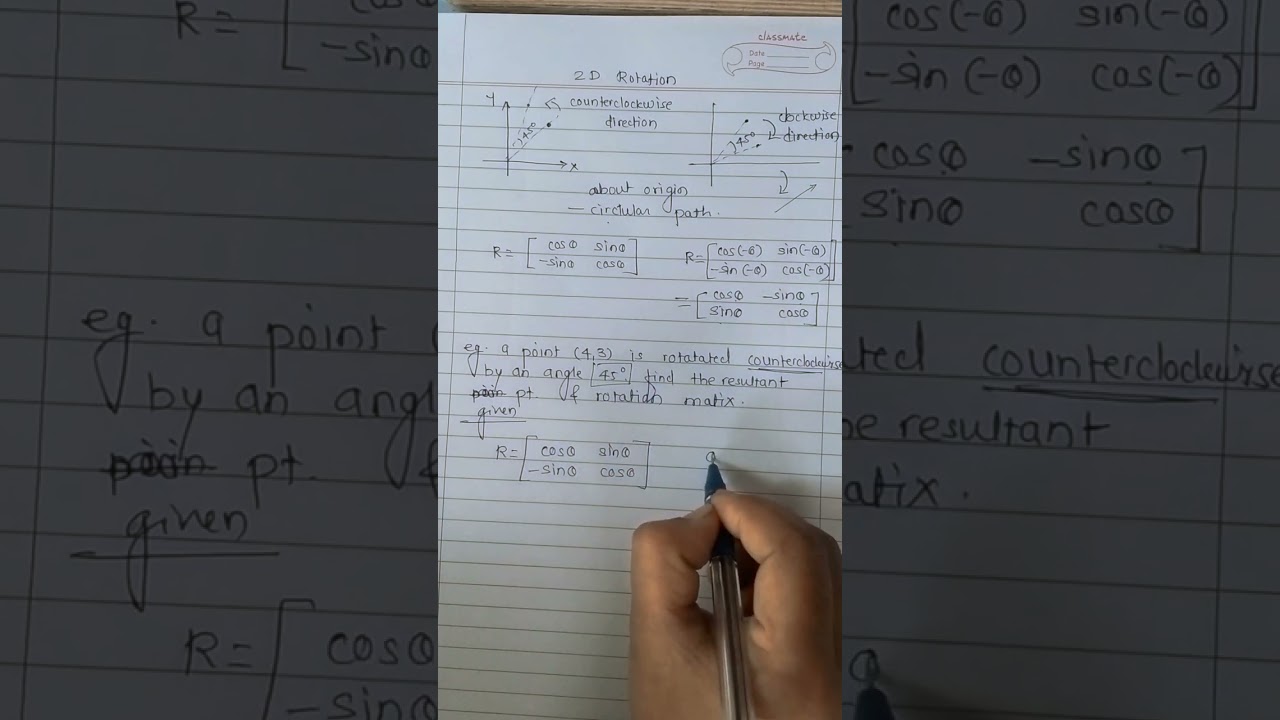 classmate
Date
Page
2D Rotation
Y
counterclockwise
direction
45°
x
clockwise
direction
45°
about origin
— circular path.
R = [ cosθ sinθ
-sinθ cosθ ]
R = [ cos(-θ) sin(-θ)
-sin(-θ) cos(-θ) ]
= [ cosθ -sinθ
sinθ cosθ ]
eg. a point (4,3) is rotatated counterclockwise
by an angle 45° find the resultant
pt. & rotation matix.
given
R = [ cosθ sinθ
-sinθ cosθ ]
θ